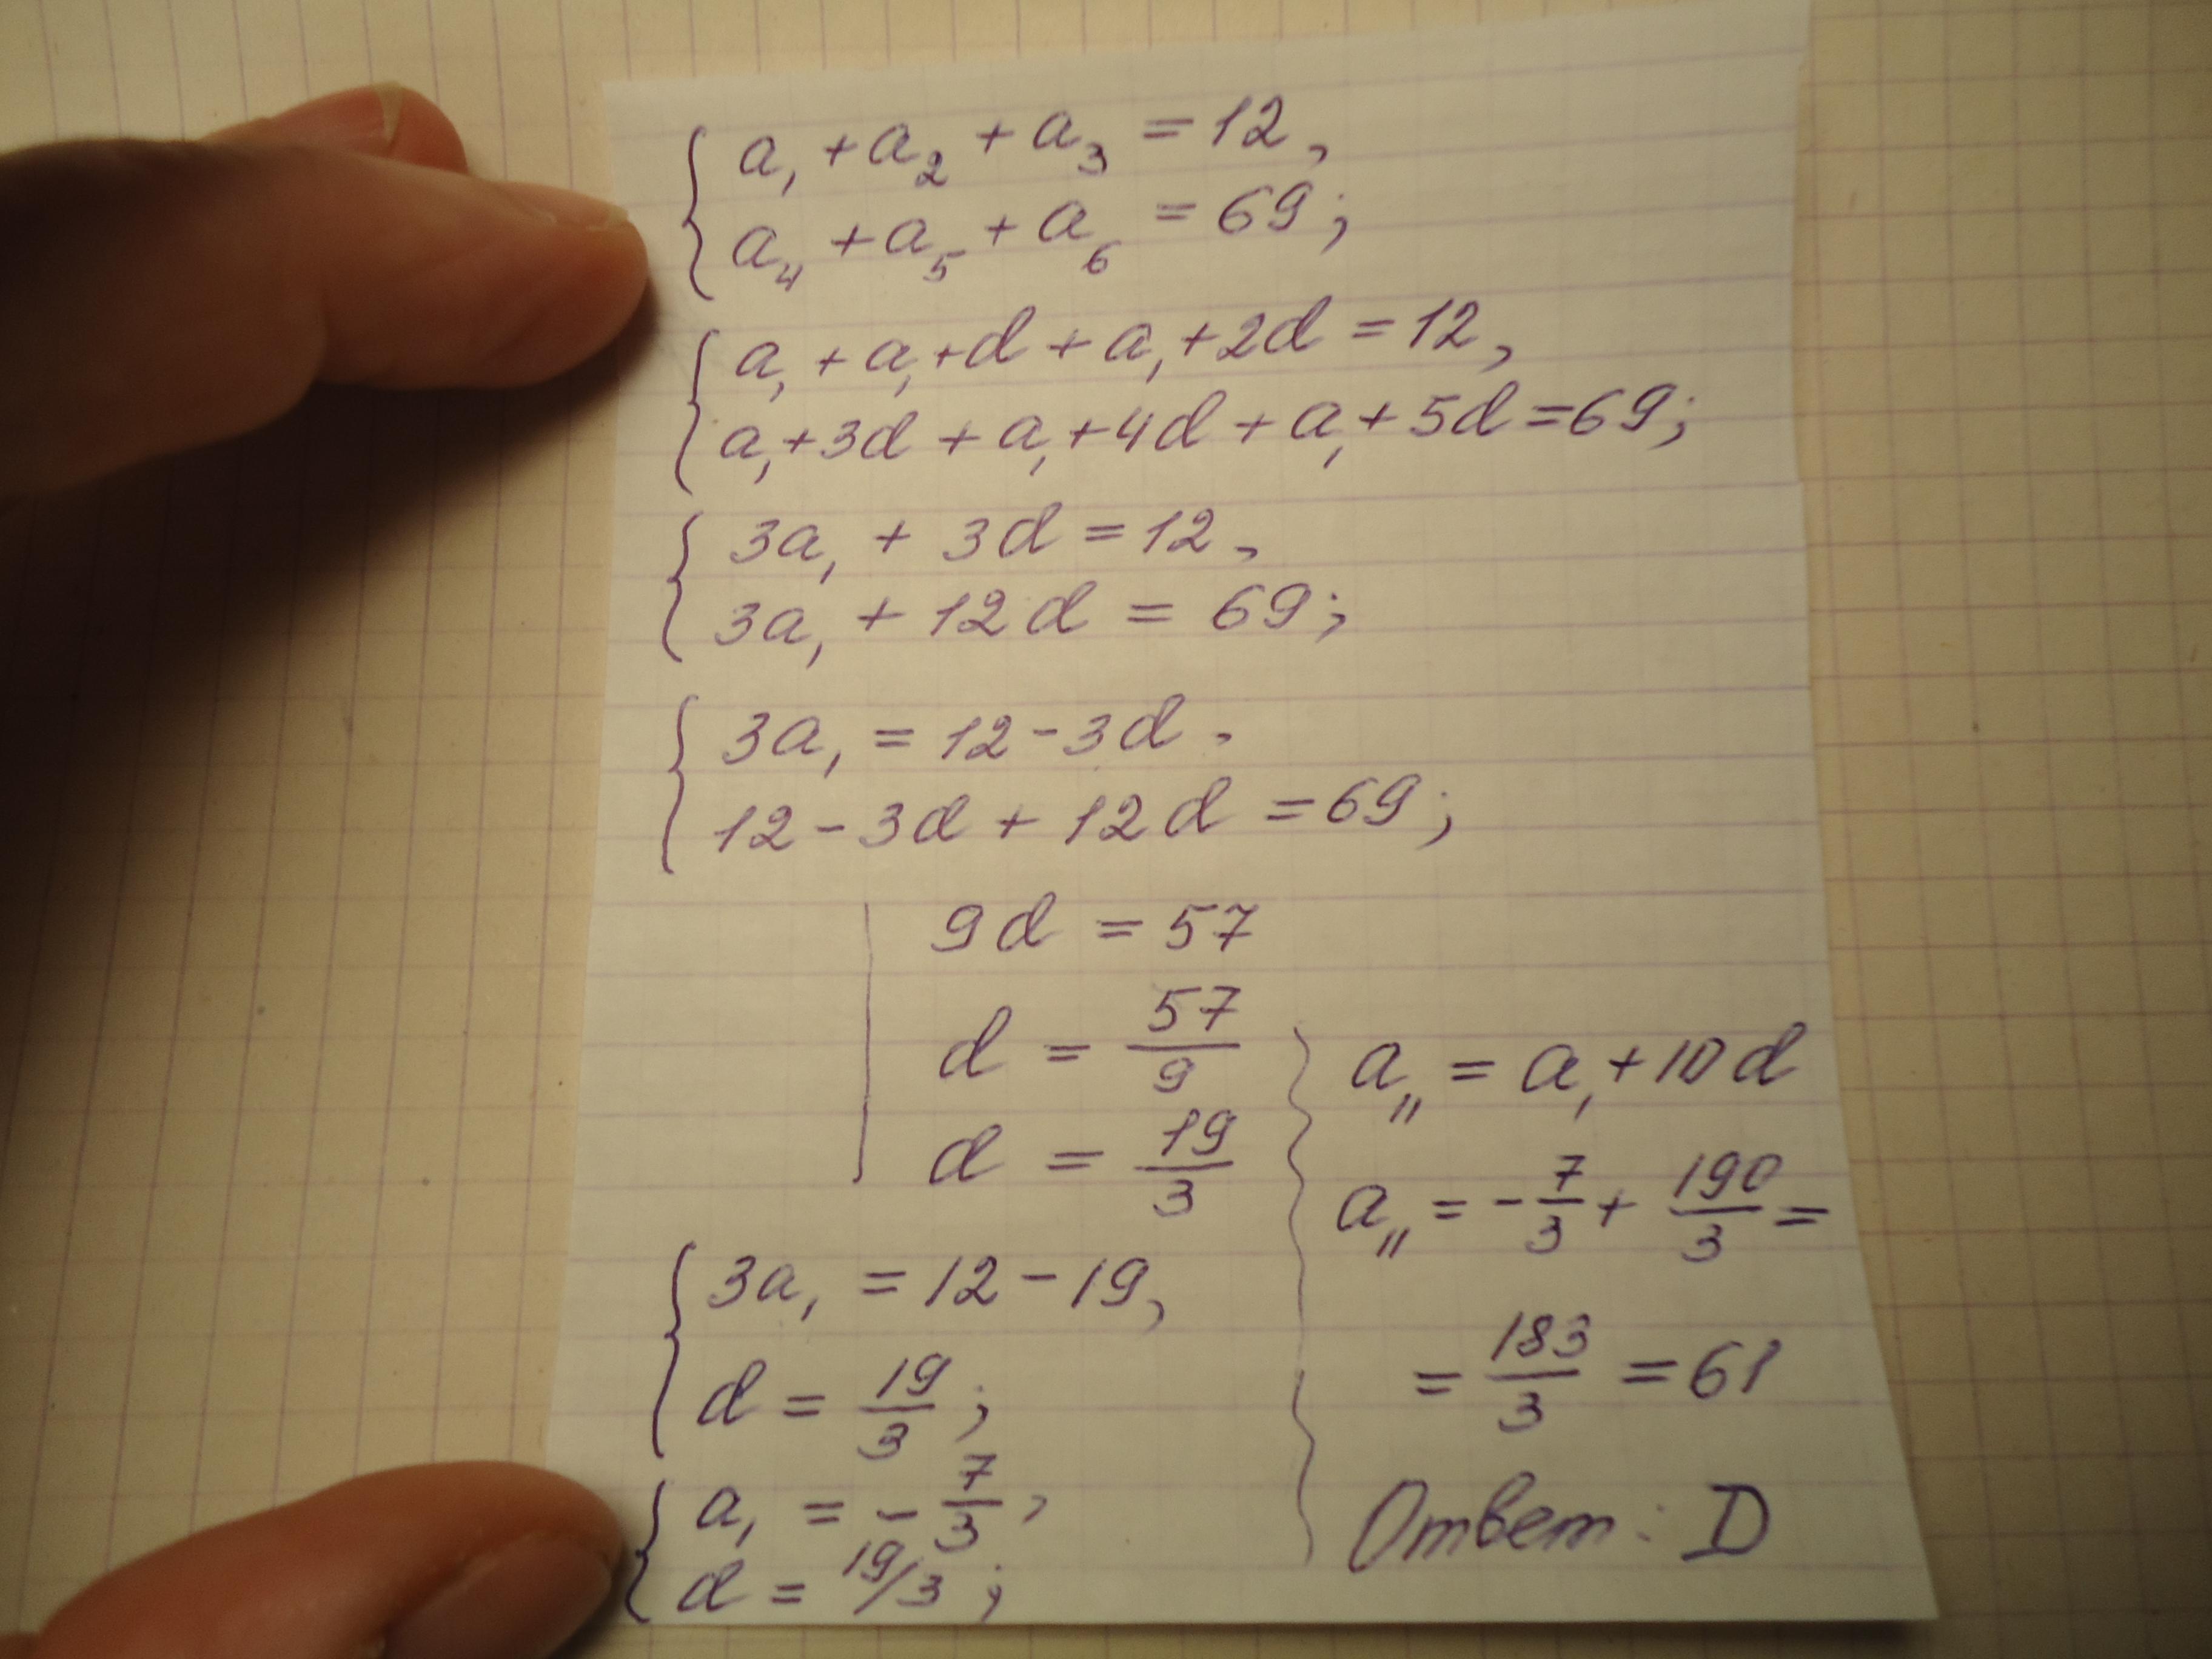 a₁ + a₂ + a₃ = 12,
a₄ + a₅ + a₆ = 69;
a₁ + a₁ + d + a₁ + 2d = 12,
a₁ + 3d + a₁ + 4d + a₁ + 5d = 69;
3a₁ + 3d = 12,
3a₁ + 12d = 69;
3a₁ = 12 - 3d,
12 - 3d + 12d = 69;
9d = 57
d = 57/9
d = 19/3
3a₁ = 12 - 19,
d = 19/3;
a₁ = - 7/3,
d = 19/3;
a₁₁ = a₁ + 10d
a₁₁ = - 7/3 + 190/3 =
= 183/3 = 61
Ответ: D